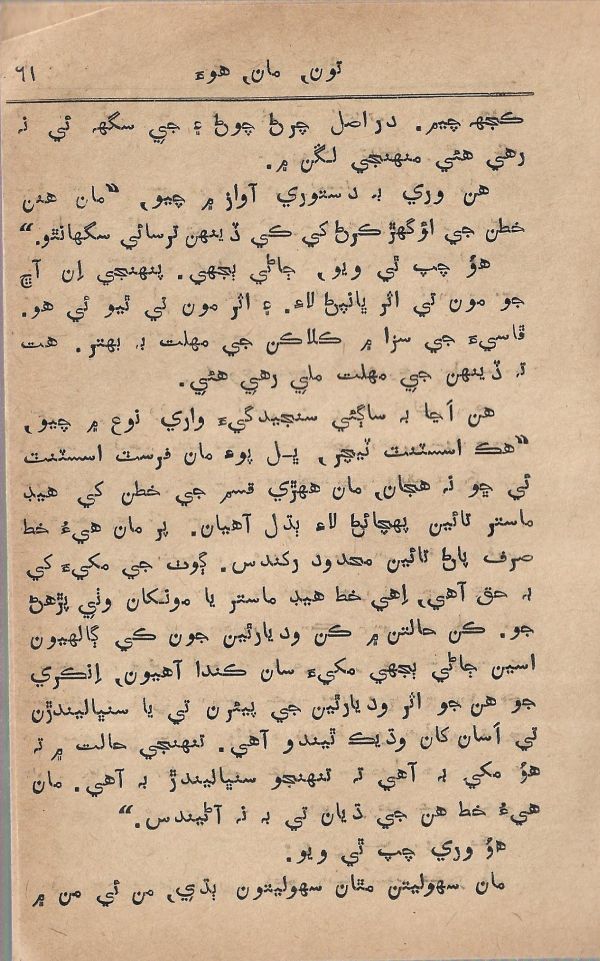 تون, مان, هوءَ ٦١
ڪجهہ چيم. دراصل چرڻ چوڻ ۽ جي سگهہ ئي نہ
رهي هئي منهنجي لڱن ۾.
هن وري بہ دستوري آواز ۾ چيو, ”مان هنن
خطن جي اوگهڙ ڪرڻ کي ڪي ڏينهن ترسائي سگهانٿو.“
هؤ چپ ٿي ويو, ڄاڻي ٻجهي. پنهنجي اِن آڇ
جو مون تي اثر ڀانپڻ لاءِ. ۽ اثر مون تي ٿيو ئي هو.
ڦاسيءَ جي سزا ۾ ڪلاڪن جي مهلت بہ بهتر. هت
تہ ڏينهن جي مهلت ملي رهي هئي.
هن اَڃا بہ ساڳئي سنجيدگيءَ واري نوع ۾ چيو,
”هڪ اسسٽنٽ ٽيچر, ڀل پوءِ مان فرسٽ اسسٽنٽ
ئي ڇو نہ هجان, مان ههڙي قسم جي خطن کي هيڊ
ماستر تائين پهچائڻ لاءِ ٻڌل آهيان. پر مان هيءُ خط
صرف پاڻ تائين محدود رکندس. ڳوٺ جي مکيءَ کي
بہ حق آهي, اِهي خط هيڊ ماستر يا مونکان وٺي پڙهڻ
جو. ڪن حالتن ۾ ڪن وديارٿين جون ڪي ڳالهيون
اسين ڄاڻي ٻجهي مکيءَ سان ڪندا آهيون, اِنڪري
جو هن جو اثر وديارٿين جي پيئرن تي يا سنڀاليندڙن
تي اَسان کان وڌيڪ ٿيندو آهي. تنهنجي حالت ۾ تہ
هؤ مکي بہ آهي تہ تنهنجو سنڀاليندڙ بہ آهي. مان
هيءُ خط هن جي ڌيان تي بہ نہ آڻيندس.“
هؤ وري چپ ٿي ويو.
مان سهوليتن مٿان سهوليتون ٻڌي, من ئي من ۾